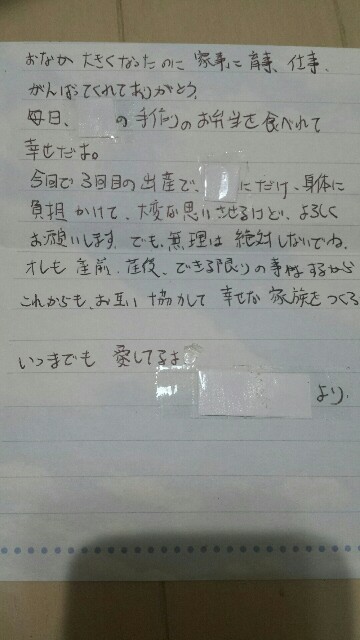 おなか大きくなったのに 家事に 育事、仕事、
がんばってくれてありがとう。
毎日、 の手作りのお弁当を食べれて
幸せだよ。
今回で3回目の出産で、 にだけ、身体に
負担かけて、大変な思いさせるけど、よろしく
お願いします。でも、無理は絶対しないでね。
オレも産前、産後、できる限りの事はするから
これからも、お互い協力して 幸せな家族をつくろ
いつまでも 愛してるよ
より。